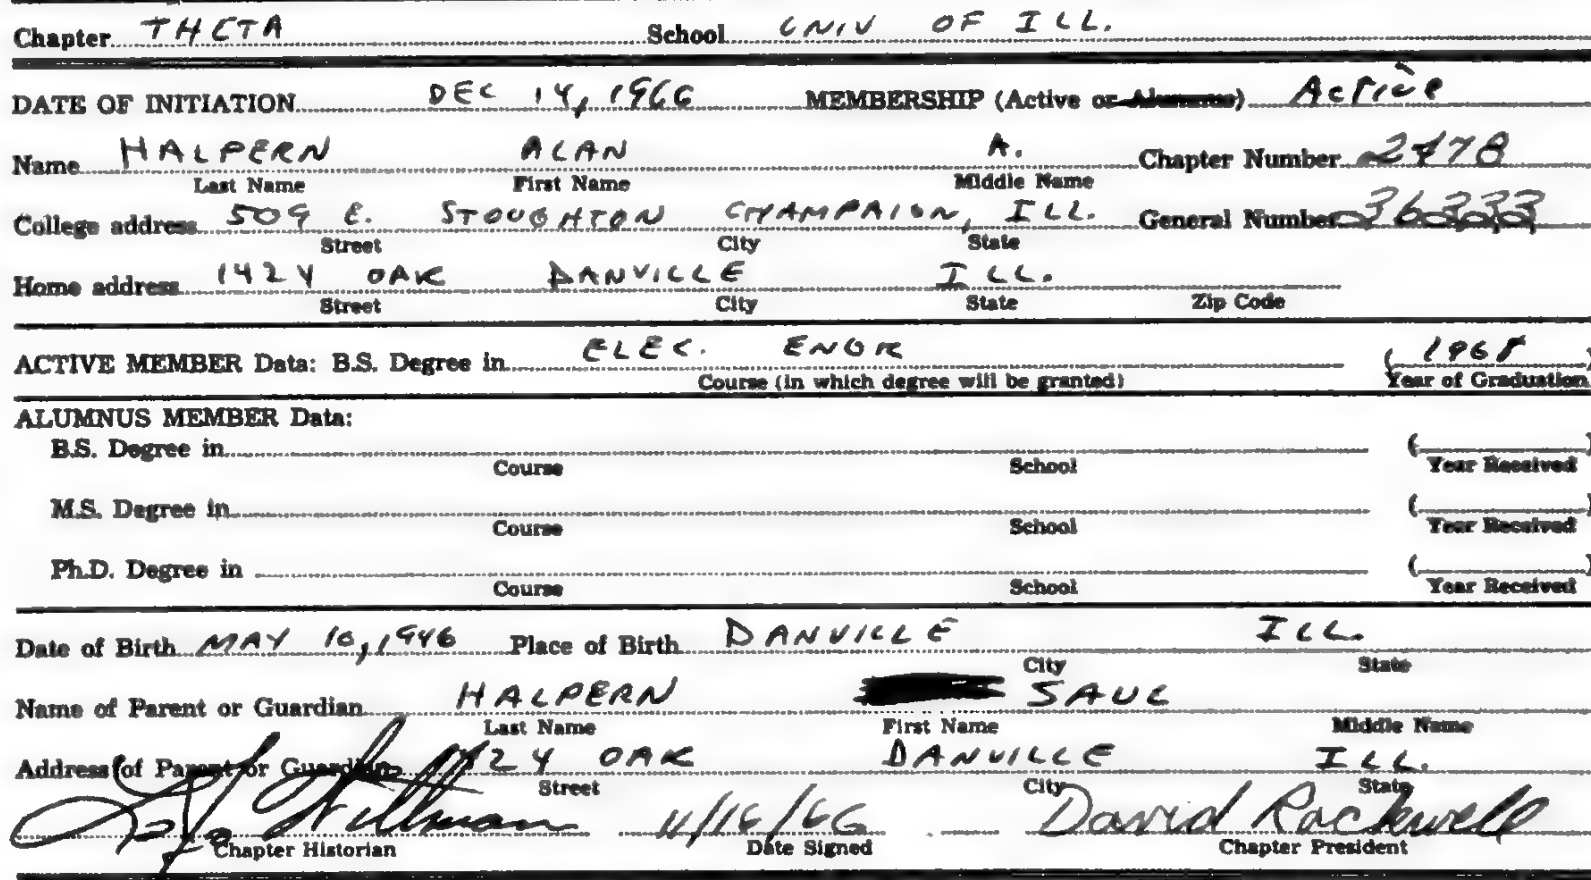 Chapter THETA School UNIV OF ILL.
DATE OF INITIATION DEC 14, 1966 MEMBERSHIP (Active or Alumnus) Active
Name HALPERN ALAN A. Chapter Number 2478
Last Name First Name Middle Name
College address 509 E. STOUGHTON CHAMPAIGN, ILL. General Number 36333
Street City State
Home address 1424 OAK DANVILLE ILL.
Street City State Zip Code
ACTIVE MEMBER Data: B.S. Degree in ELEC. ENGR (1968)
Course (in which degree will be granted) Year of Graduation
ALUMNUS MEMBER Data:
B.S. Degree in ( )
Course School Year Received
M.S. Degree in ( )
Course School Year Received
Ph.D. Degree in ( )
Course School Year Received
Date of Birth MAY 10, 1946 Place of Birth DANVILLE ILL.
City State
Name of Parent or Guardian HALPERN SAUL
Last Name First Name Middle Name
Address of Parent or Guardian 1424 OAK DANVILLE ILL.
Street City State
11/16/66 David Rockwell
Chapter Historian Date Signed Chapter President